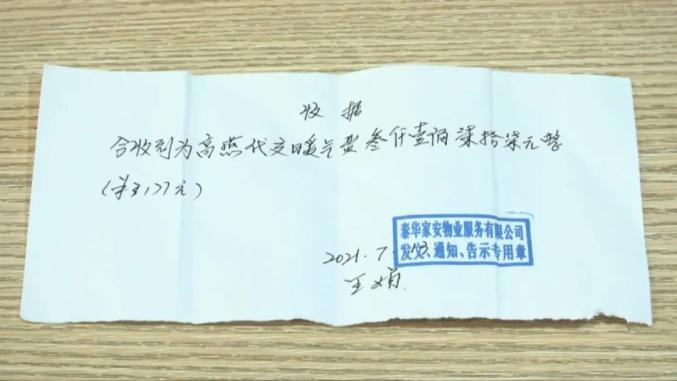 收据
今收到为高燕代交暖气费叁仟壹佰柒拾柒元整
(￥3177元)
泰华家安物业服务有限公司
发文、通知、告示专用章
2021.7.
王娟